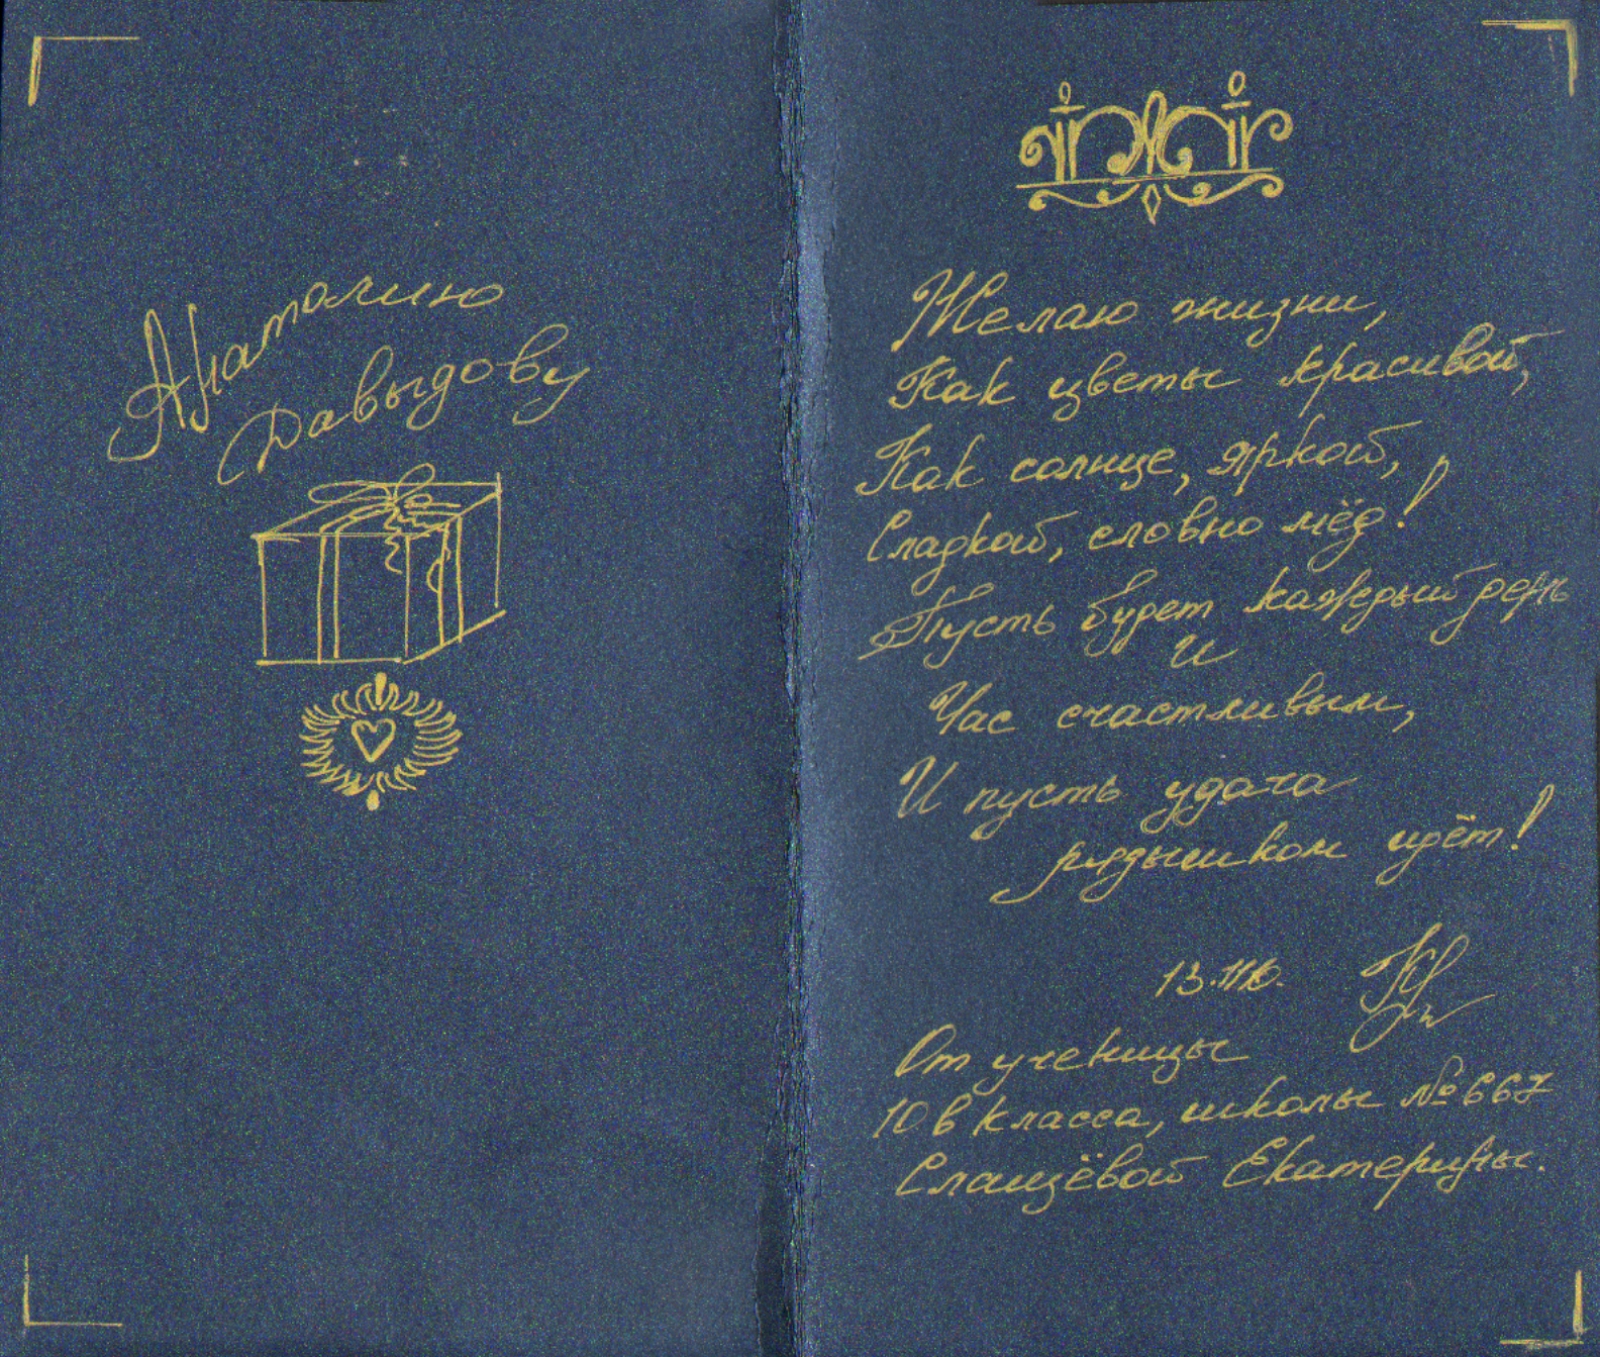 Анатолию
Давыдову
Желаю жизни,
Как цветы красивой,
Как солнце, яркой,
Сладкой, словно мёд!
Пусть будет каждый день
И
Час счастливым,
И пусть удача
рядышком идёт!
От ученицы
10 в класса, школы № 667
Слащёвой Екатерины.